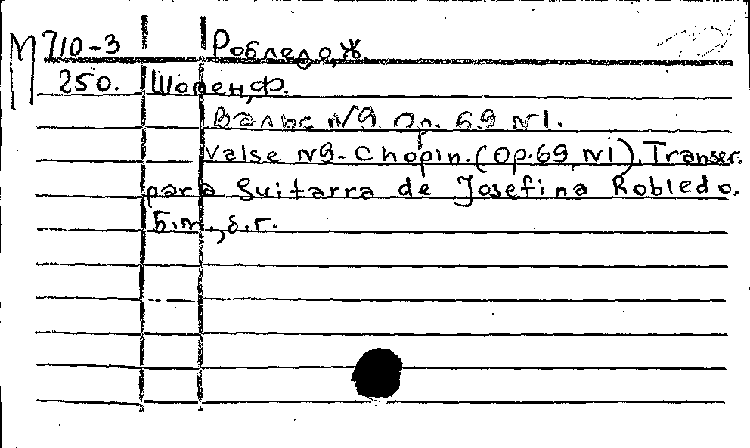 М 710-3 Робледо, Ж.
250. Шопен, Ф.
Вальс №9 Ор. 69 №1.
Valse №9 - Chopin. (Op. 69, №1). Transcr.
para Guitarra de Josefina Robledo.
Б.м., б.г.